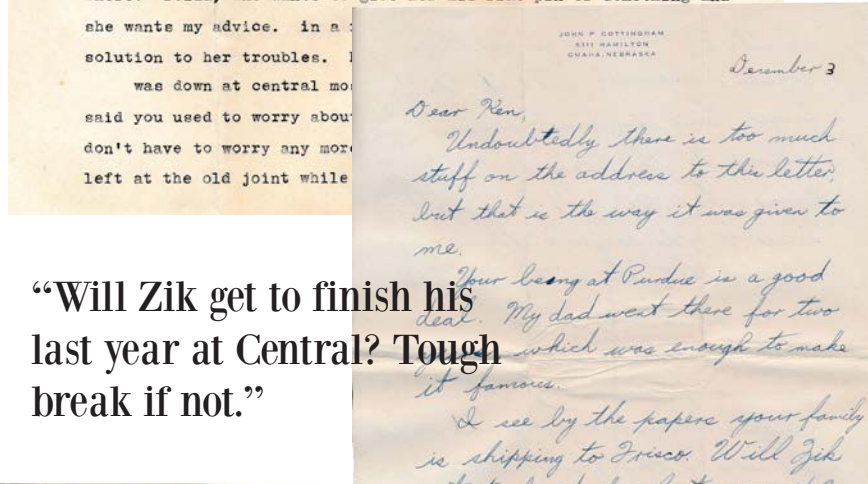 she wants my advice. in a
solution to her troubles.
was down at central mo
said you used to worry abou
don't have to worry any mor
left at the old joint while
JOHN P COTTINGHAM
5111 HAMILTON
OMAHA, NEBRASKA
December 3
Dear Ken,
Undoubtedly there is too much
stuff on the address to this letter,
but that is the way it was given to
me.
Your being at Purdue is a good
deal. My dad went there for two
which was enough to make
it famous.
I see by the papers your family
is shipping to Frisco. Will Zik
“Will Zik get to finish his
last year at Central? Tough
break if not.”